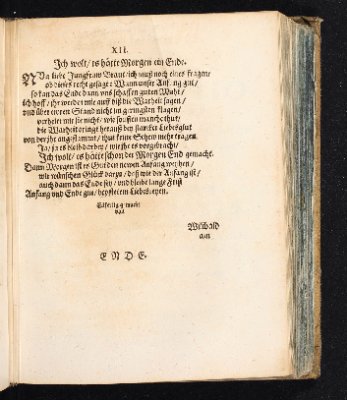 XII.
Ich wolt / es hätte Morgen ein Ende.
NUn liebe Jungfraw Braut ich muß noch eines fragen /
ob dieses recht gesagt: Wann unser Anfang gut /
so kan das Ende dann uns schaffen guten Muht /
ich hoff / ihr werdet mir auff diß die Warheit sagen /
und über ewren Stand nicht im geringsten klagen /
verhelet mir sie nicht / wie sonsten manche thut /
die Warheit bringt herauß der Liebesglut
von der ihr angeflammt / thut keine Schew mehr tragen.
Ja / ja es bleibt darbey / wie ihr es vorgebracht /
Ich wolt / es hätte schon der Morgen End gemacht.
Dann Morgen ist es Gut den newen Anfang
wir wünschen Glück darzu / daß wie der Anfang ist /
auch dann das Ende sey / und bleibe lange Frist
Anfang und Ende gut / bey
Eilfertig gemacht
von
ENDE.